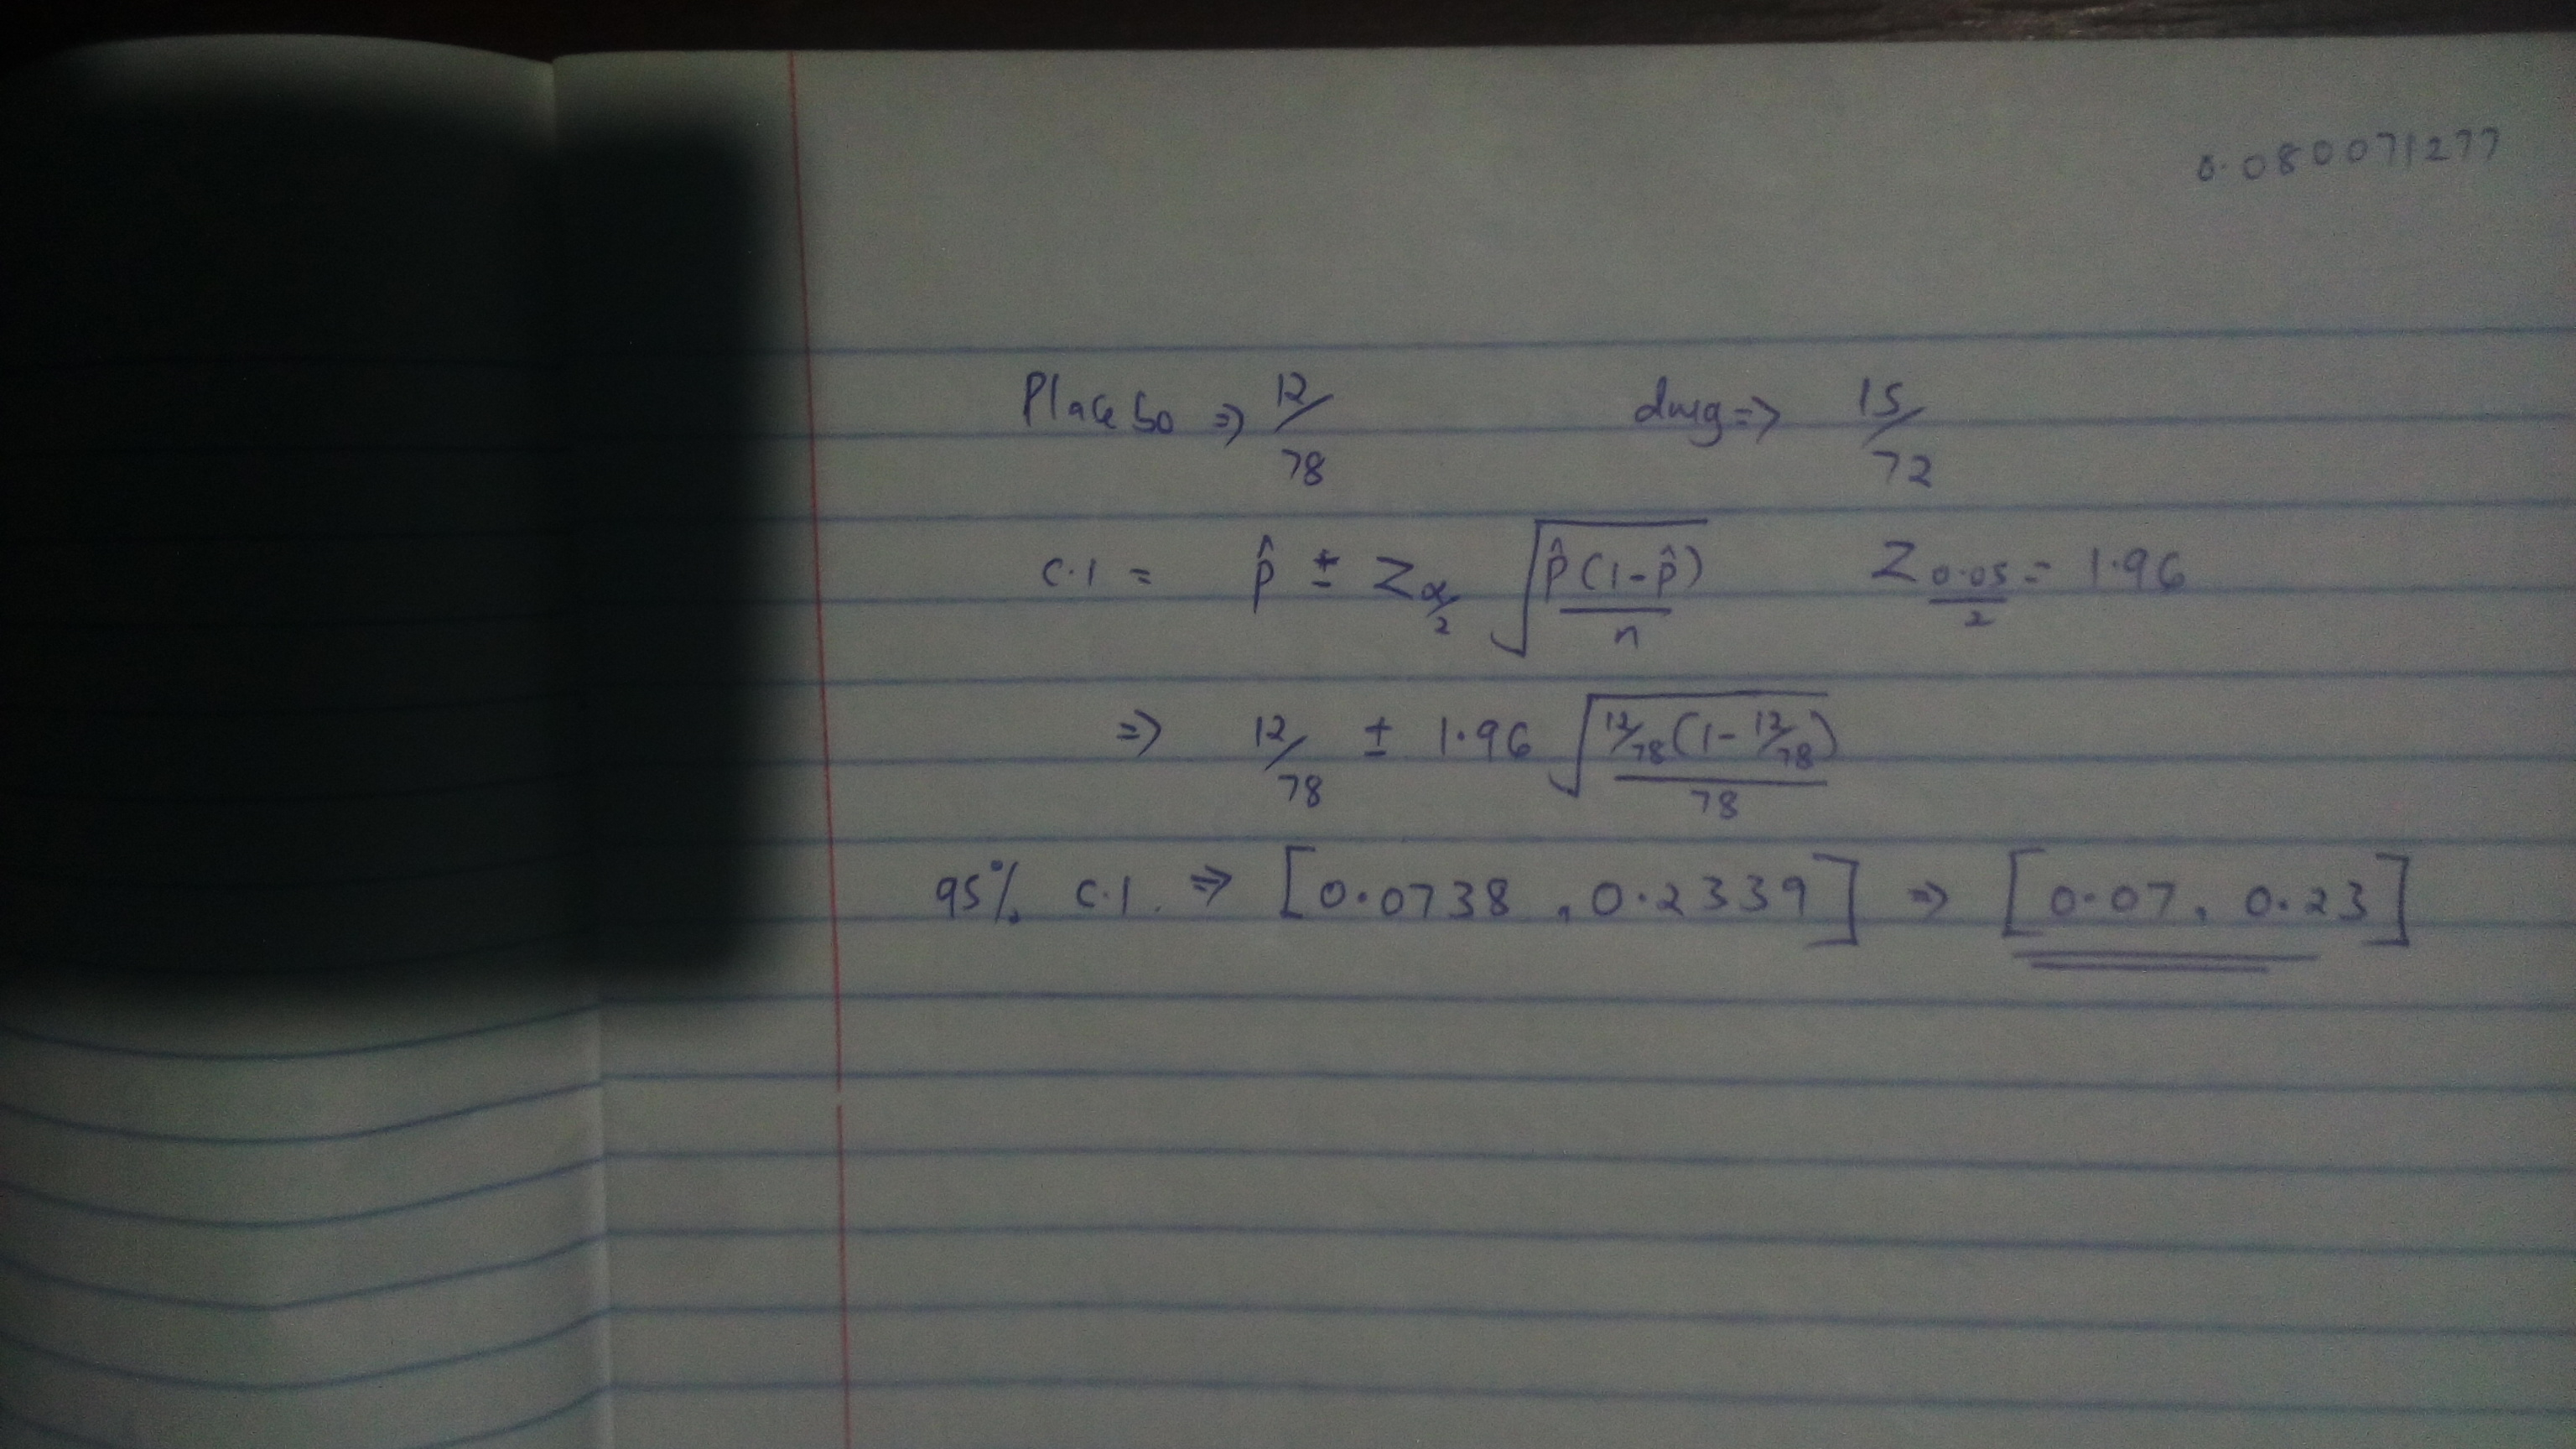 0.080071277
Placebo => 12/78 drug => 15/72
C.I = p̂ ± Zα/2 √(p̂(1-p̂)/n) Z0.05/2 = 1.96
=> 12/78 ± 1.96 √(12/78(1-12/78)/78)
95% C.I. => [0.0738, 0.2339] => [0.07, 0.23]